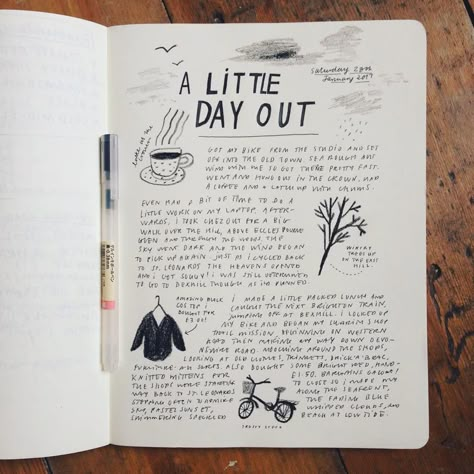 A LITTLE
DAY OUT
SATURDAY 28th
JANUARY 2017
COFFEE AT THE CROWN
GOT MY BIKE FROM THE STUDIO AND SET
OFF INTO THE OLD TOWN. SEA ROUGH AND
WIND WITH ME SO GOT THERE PRETTY FAST.
WENT AND HUNG OUT IN THE CROWN, HAD
A COFFEE AND A CATCH UP WITH CHUMS.
EVEN HAD A BIT OF TIME TO DO A
LITTLE WORK ON MY LAPTOP. AFTER-
WARDS, I TOOK CHEZ OUT FOR A BIG
WALK OVER THE HILL, ABOVE ECCLES
GLEN AND THROUGH THE WOODS. THE
SKY WENT DARK AND THE WIND BEGAN
TO PICK UP AGAIN. JUST AS I CYCLED BACK
TO ST. LEONARDS THE HEAVENS OPENED
AND I GOT SOGGY! I WAS STILL DETERMINED
TO GO TO BEXHILL THOUGH AS I'D PLANNED.
WINTRY
TREES UP
ON THE EAST
HILL.
AMAZING BLACK
I
BOUGHT FOR
£3.00!
I MADE A LITTLE PACKED LUNCH AND
CAUGHT THE NEXT BRIGHTON TRAIN,
JUMPING OFF AT BEXHILL. I LOCKED UP
MY BIKE AND BEGAN MY CHARITY SHOP
TOTAL MISSION, BEGINNING ON WESTERN
ROAD THEN MAKING MY WAY DOWN DEVO-
NSHIRE ROAD. MOOCHING AROUND THE SHOPS,
LOOKING AT OLD CLOTHES, TRINKETS, BRIC-A-BRAC,
FURNITURE AND ALSO BOUGHT SOME BRIGHT RED, HAND-
KNITTED MITTENS FOR £1.50. BARGAINS GALORE!
THE SHOPS WERE STARTING TO CLOSE SO I MADE MY
WAY BACK TO ST LEONARDS ALONG THE SEAFRONT,
STOPPING OFTEN TO ADMIRE THE FADING BLUE
SKY, PASTEL SUNSET, WHIPPED CLOUDS, AND
SHIMMERING BEACH AT LOW TIDE.